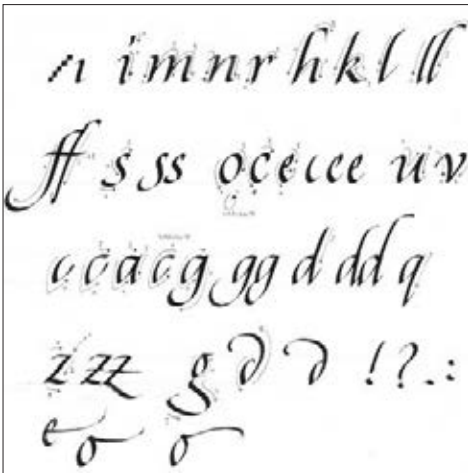 i m n r h k l ll
ff s ss o c e c c e u v
c c a c g gg d dd q
z zz g d d ! ? . :
e o o